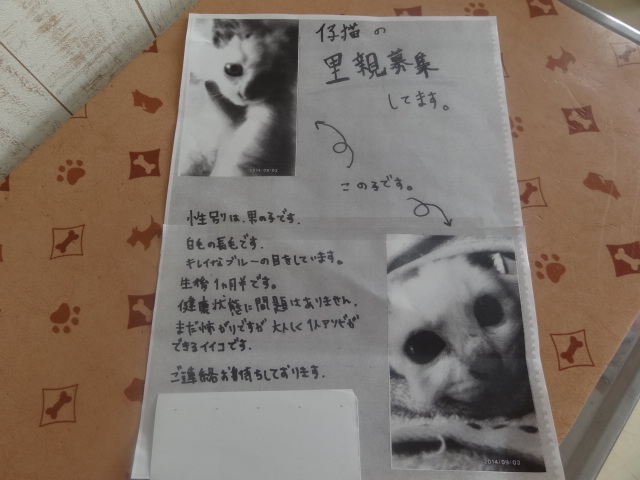 仔猫の
里親募集
してます。
このコです。
性別は、男の子です.
白毛の長毛です.
キレイなブルーの目をしています。
生後1ヵ月半です。
健康状態に問題はありません.
まだ怖がりですが大人しく1人アソビが
できるイイコです.
ご連絡お待ちしております.
2014/09/03
2014/09/03